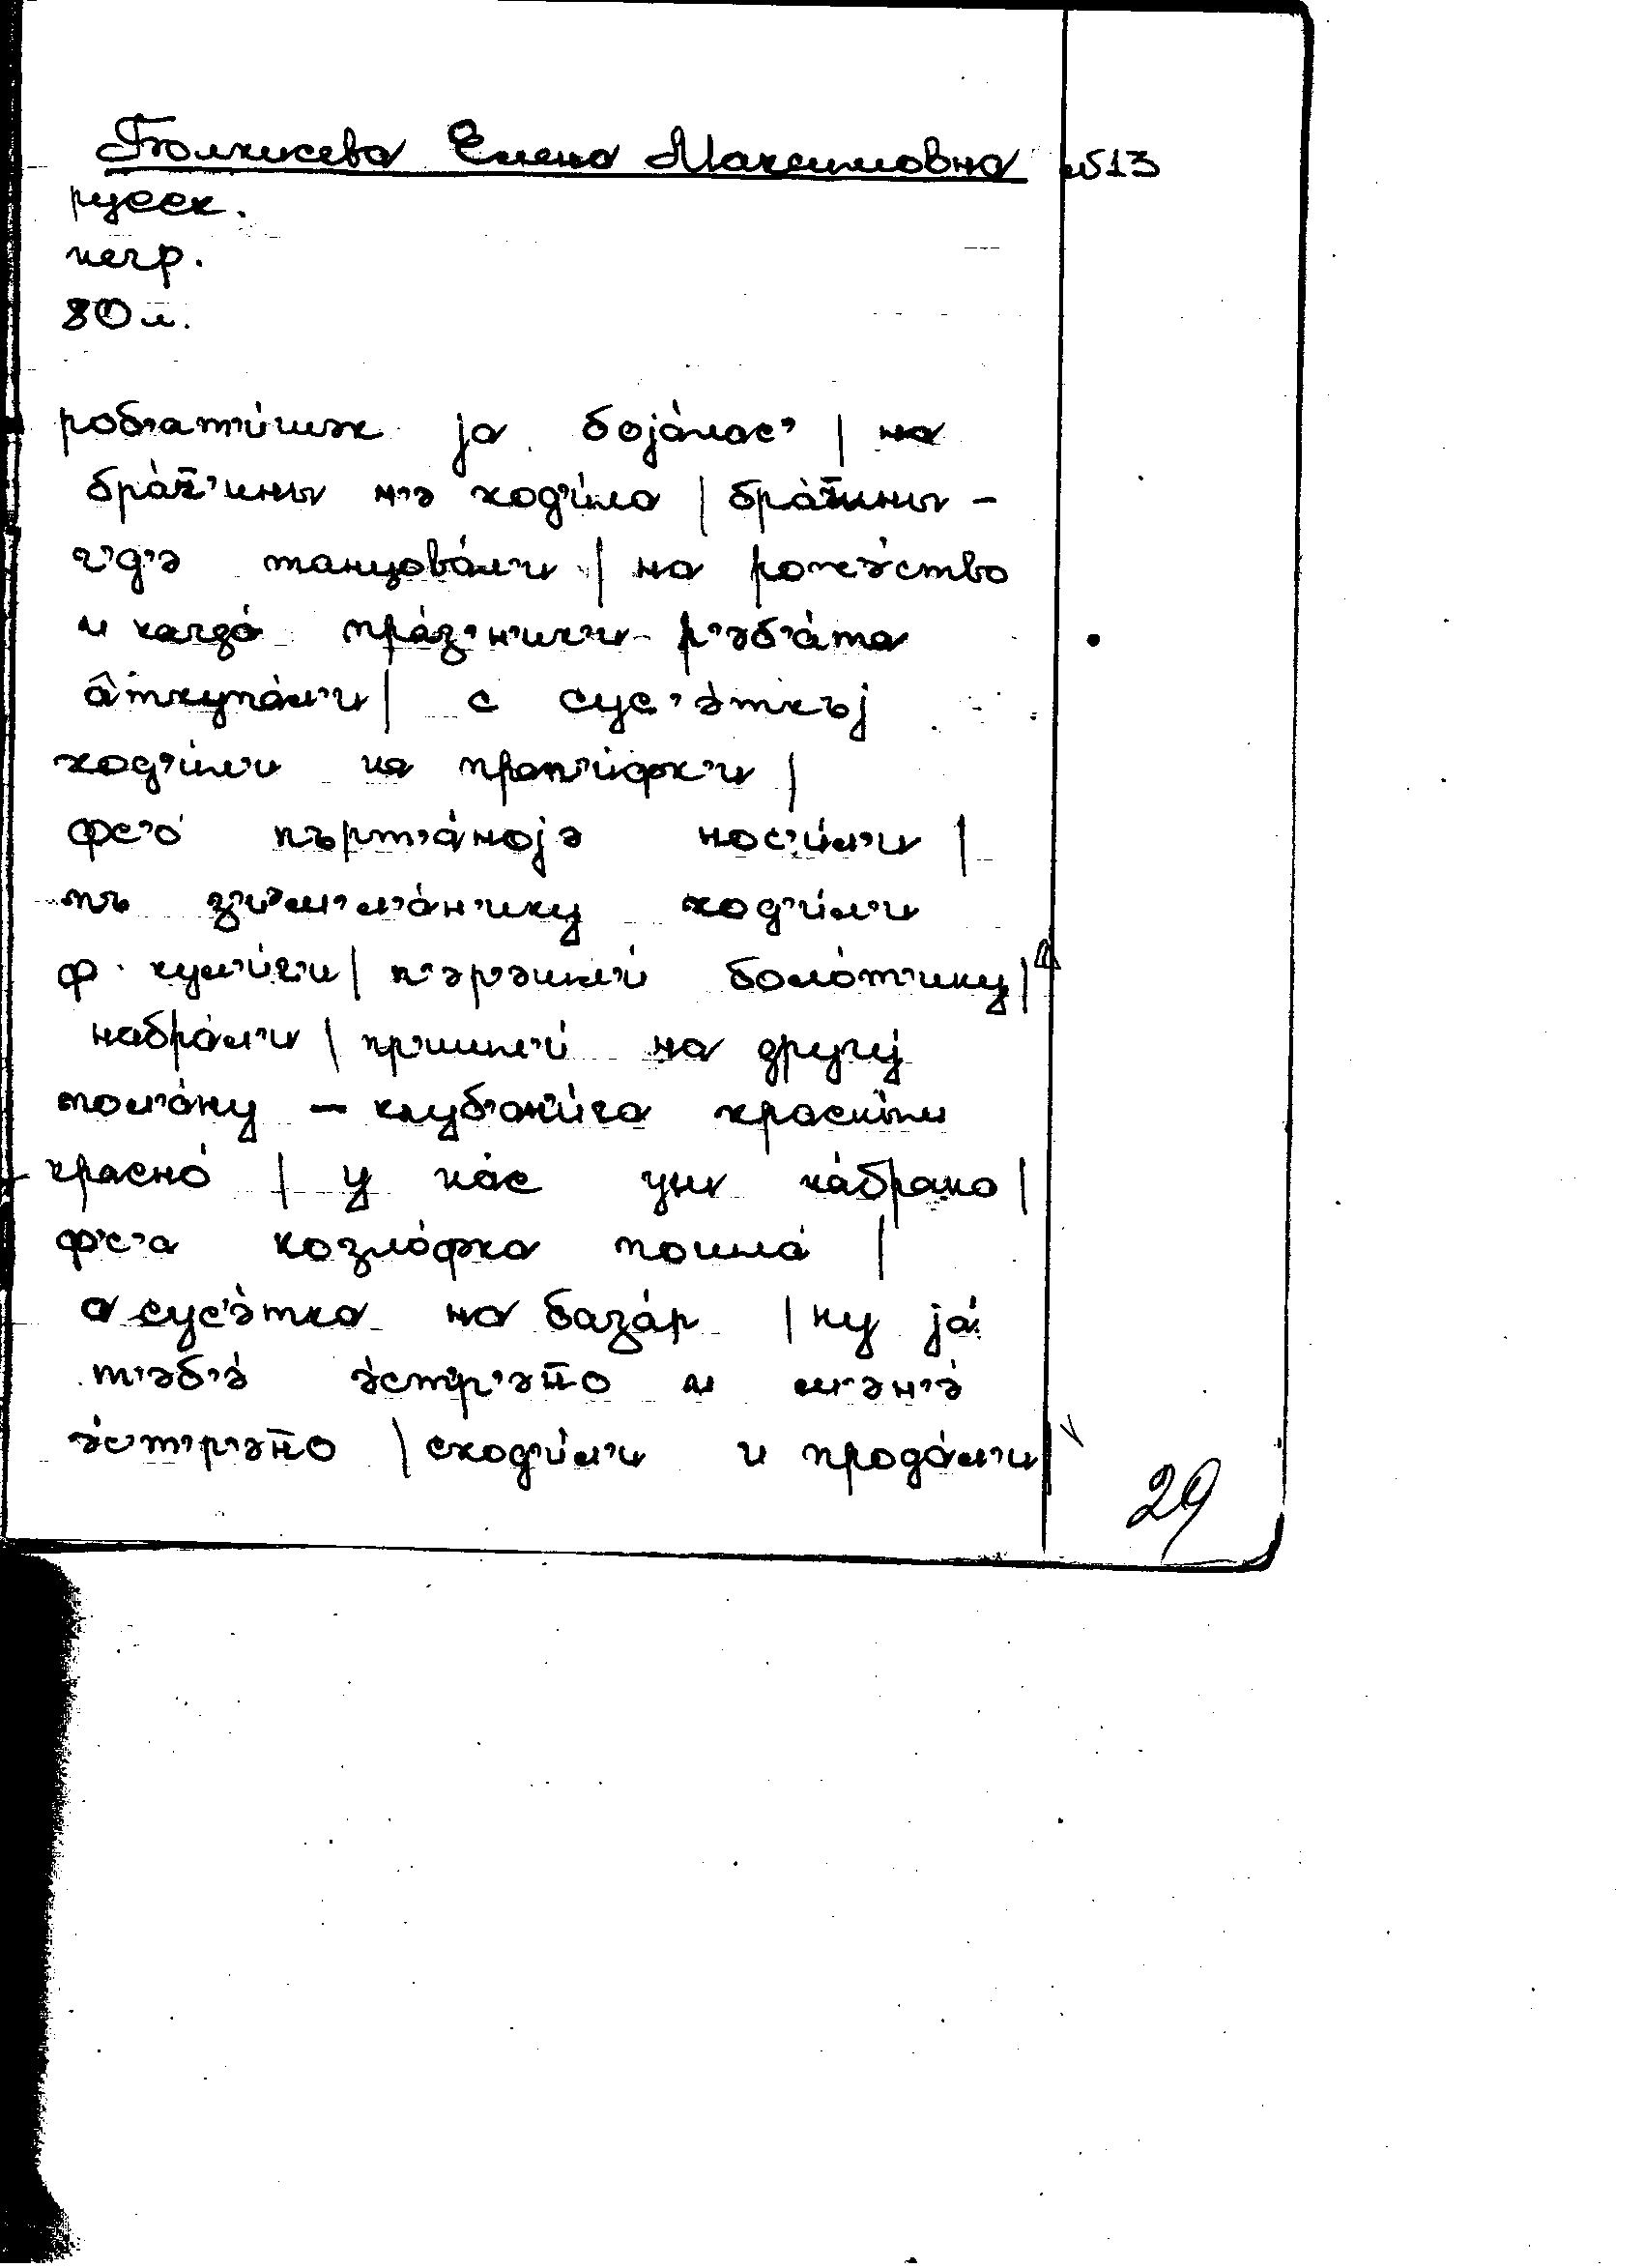 Елена Максимовна №13
русск.
негр.
80 л.
роб'ат'и́шэк ja боjа́лас' |
бра́т̄'ины н'э ход'и́ла | бра́т̄ины –
г'д'э танцова́л'и | на рожэ́ство
и кагда́ пра́з'н'ик'и р'эб'а́та
а̂ткупа́л'и | с сус'э́ткъj
ход'и́л'и на прап'и́фк'и |
фс'о́ пърт'а́ноjэ нос'и́л'и |
пъ з'и́мл'ан'ику ход'и́л'и
ф кул'и́ги | п'эр'эшл'и́ боло́т'ину |
набра́л'и | пр'ишл'и́ на другуj
пол'а́ну – клуб'ан'и́га
красно́ | у на́с уш на́брано |
фс'а козло́фка пошла́ |
а сус'э́тка на база́р | ну jа́
т'эб'э́ э́стр'эт̄о и м'эн'э́
э́стр'эт̄о | сход'и́л'и и прода́л'и
29